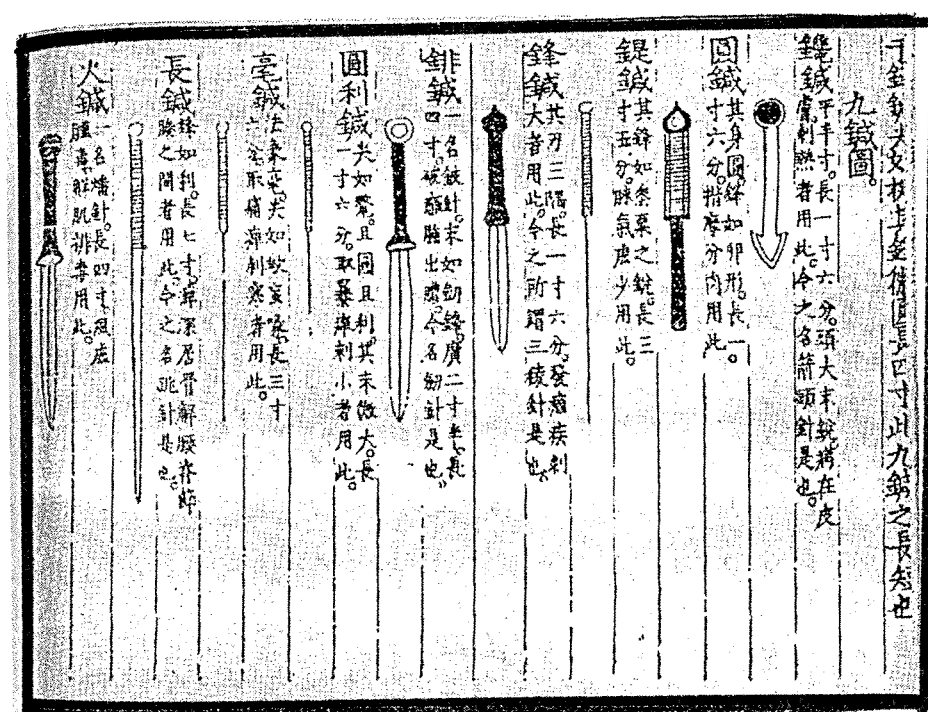 四寸此九鍼之長短也
九鍼圖。
鑱鍼
平半寸。長一寸六分。頭大末銳。病在皮
膚。刺熱者用此。今之名箭頭針是也。
圓鍼
其身圓。鋒如卵形。長一。
寸六分。揩摩分肉用此。
鍉鍼
其鋒如黍粟之銳。長三
寸五分。脉氣虛少用此。
鋒鍼
其刃三隅。長一寸六分。發痼疾刺
大者用此。今之所謂三稜針是也。
䤵鍼
一名鈹針。末如劒鋒。廣二寸半。長
四寸。破癰腫出膿。今名劒針是也。
圓利鍼
尖如氂。且圓且利。其末微大。長
一寸六分。取暴痺刺小者用此。
毫鍼
法象毫。尖如蚊虻喙。長三寸
六分。取痛痺刺寒者用此。
長鍼
鋒如利。長七寸。痺深居骨解腰脊節
腠之間者用此。今之名跳針是也。
火鍼
一名燔針。長四寸。風虛
腫毒。解肌排毒用此。